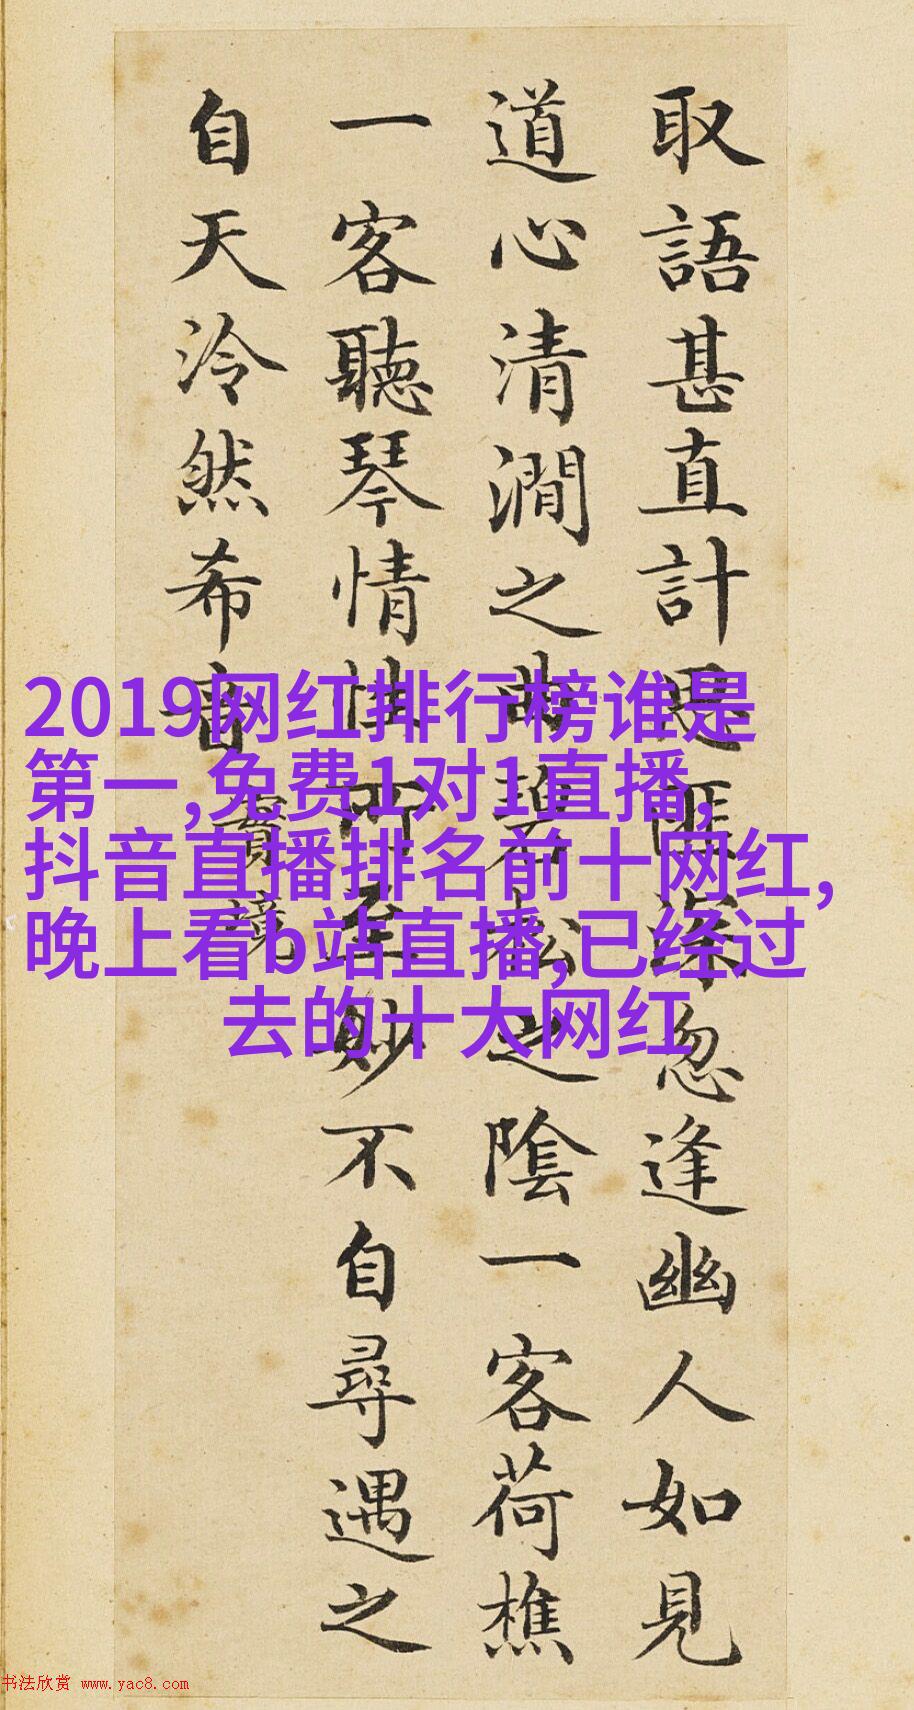 取語甚直計思匪深忽逢幽人如見
道心清澗之曲碧松之陰一客荷樵
一客聽琴情性所至妙不自尋遇之
自天泠然希音
實境
2019网红排行榜谁是
第一,免费1对1直播,
抖音直播排名前十网红,
晚上看b站直播,已经过
去的十大网红
书法欣赏 www.yac8.com